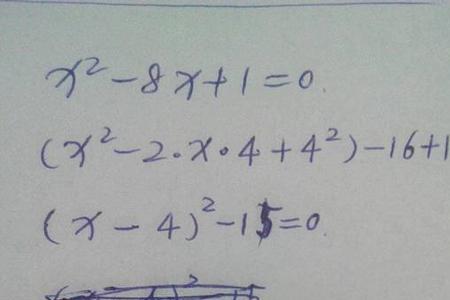 x²-8x+1=0.
(x²-2·x·4+4²)-16+1
(x-4)²-15=0.